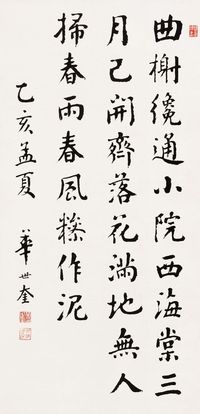 曲榭纔通小院西海棠三
月已開齊落花滿地無人
掃春雨春風糝作泥
乙亥孟夏
華世奎